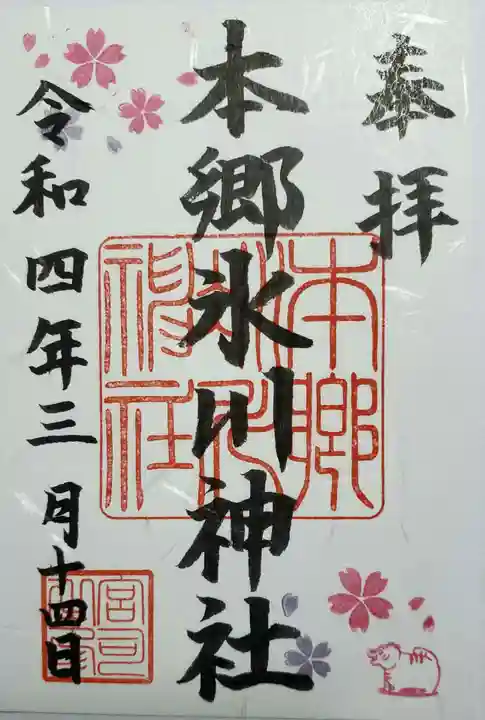 奉拝
本郷氷川神社
令和四年三月十四日
本郷
氷川
神社